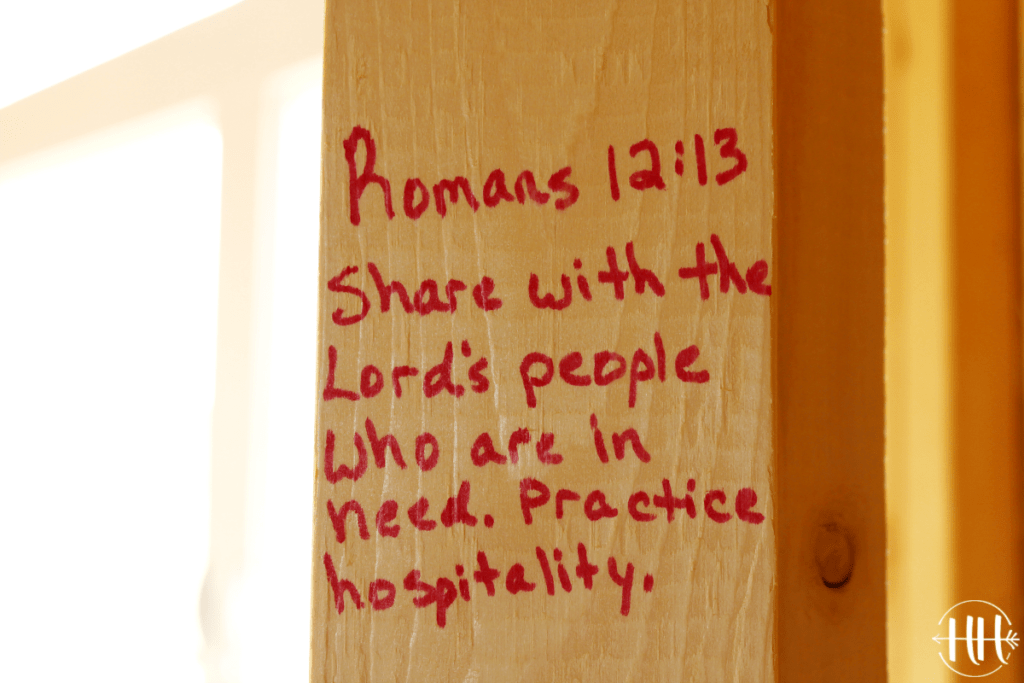 Romans 12:13
Share with the
Lord's people
who are in
need. Practice
hospitality.
HH